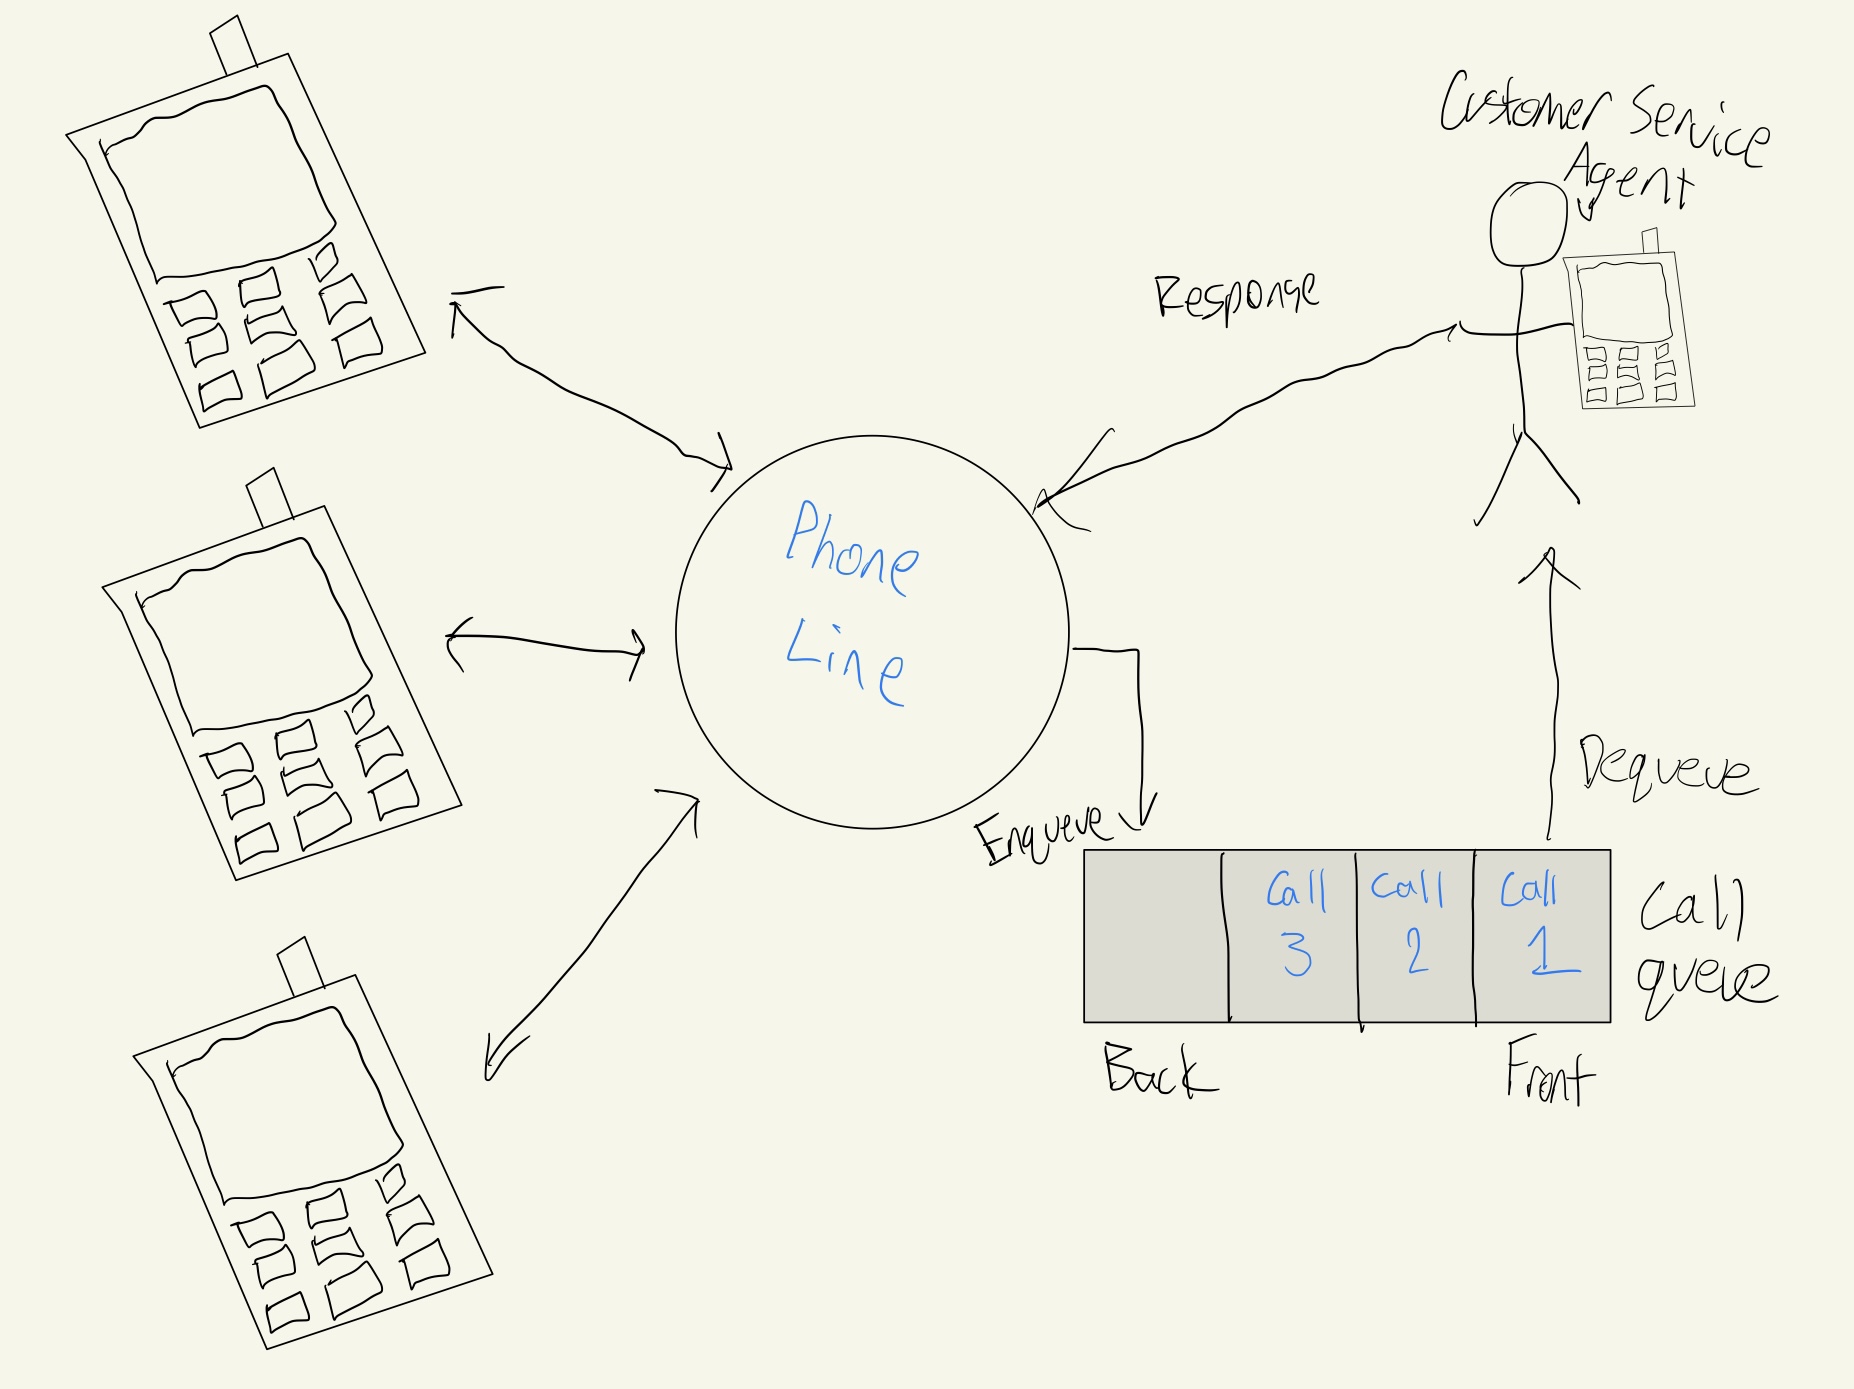 Customer Service
Agent
Response
Phone
Line
Dequeue
Enqueue
Call
3
Call
2
Call
1
Call
queue
Back
Front